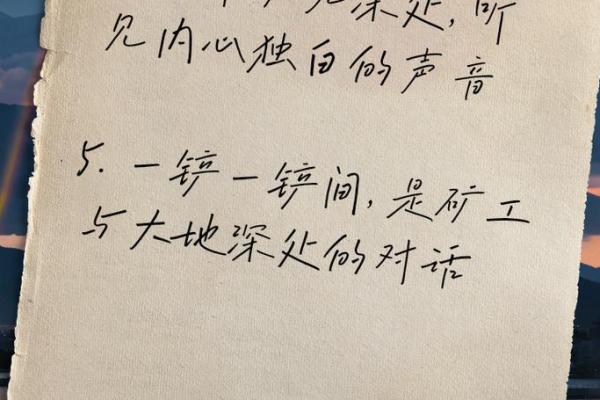 深处,听
见内心独白的声音
5.一铲一铲间,是矿工
与大地深处的对话